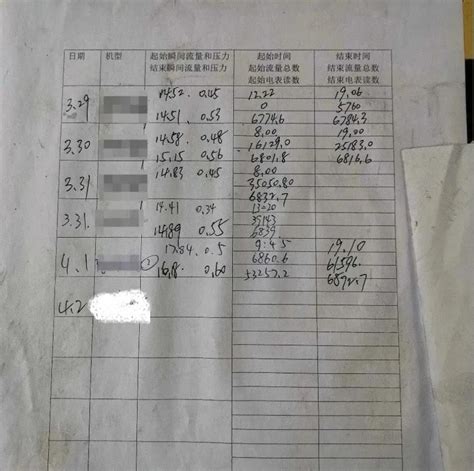 日期 机型 起始瞬间流量和压力 起始时间 结束时间
结束瞬间流量和压力 起始流量总数 结束流量总数
起始电表读数 结束电表读数
14.52. 0.45 12.22 19.06
3.29 0 5760
14.51. 0.53 6774.6 6784.3
14.58. 0.48 8.00 19.00
3.30 16129.0 25183.0
15.15 0.56 6801.8 6816.6
14.83 0.45 8.00
3.31 35050.80
6832.7
14.41 0.34 13=20
3.31. 35143
14.89 0.55 6839
17.84. 0.5 9:45 19.10
4.1 6860.6 61596.
16.8. 0.60 53257.2 6892.7
4.2